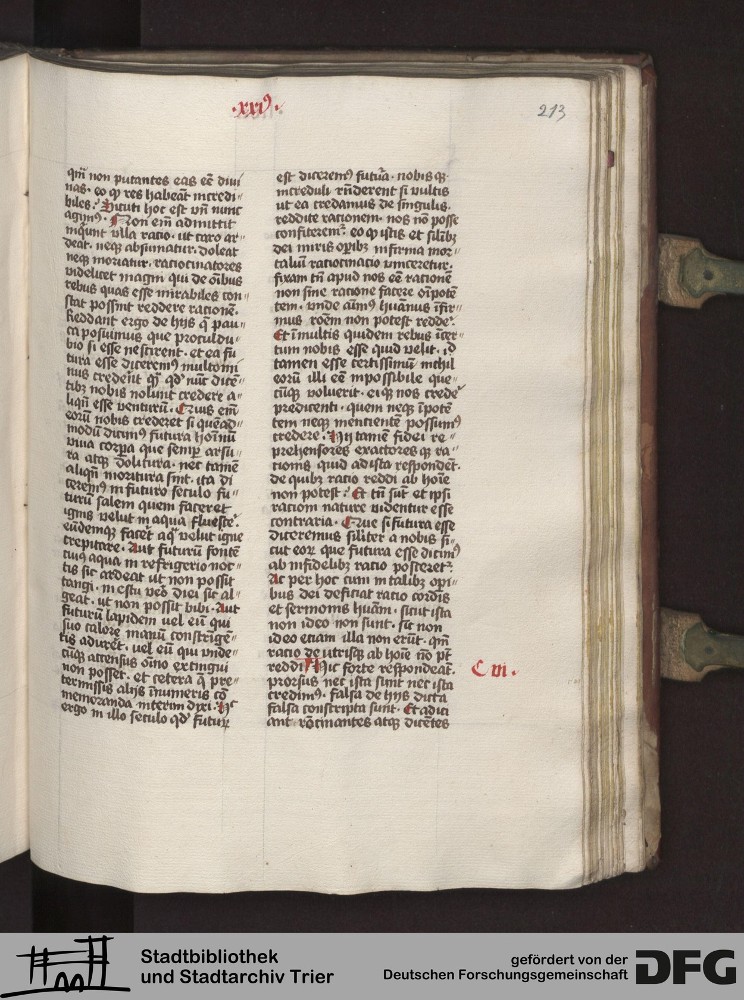 ·xxi⁹·
213
qm̄ non putantes eas eē divi
nas· eo ꝙ res habeāt incredi⸗
biles? Sicuti hoc est vn̄ nunc
agim⁹· Non em̄ admittit
inqunt vlla ratio· ut caro ar⸗
deat· neqꝫ absumatur· doleat
neqꝫ moriatur· ratiocinatores
videlicet magni qui de oībus
rebus quas esse mirabiles con⸗
stat possint reddere rationē·
Reddant ergo de hijs q̄ pau⸗
ca posuimus que proculdu⸗
bio si esse nescirent· et ea fu
tura esse dicerem⁹ multo mi
nus crederēt qͣꝫ qd̓ nūc dicē⸗
tibꝫ nobis nolunt credere a⸗
liqn̄ esse venturū· Quis em̄
eorū nobis crederet si quēad⸗
modū dicim⁹ futura hoīnū
viua corp̲a que semp̲ arsu⸗
ra atqꝫ dolitura· nec tamē
aliqn̄ moritura sint· ita di
cerem⁹ in futuro seculo fu⸗
turū salem quem faceret
ignis velut in aqua fluescē·
eūdemqꝫ facēt aqͣ velut igne
crepitare· Aut futurū fontē
cuiꝰ aqua in refrigerio noc⸗
tis sic ardeat ut non possit
tangi· in estu v̓o diei sic al⸗
geat· ut non possit bibi· Aut
futurū lapidem vel eū qui
suo calore manū constrigē⸗
tis aduret· vel eū qui vnde⸗
cūqꝫ accensus oīno extingui
non posset· et cetera q̄ pre⸗
termissis alijs īnumeris cō⸗
memoranda interim dixi· Hͨ
ergo in illo seculo qd̓ futuꝝ
est dicerem⁹ futura· nobisqꝫ
increduli rn̄derent si vultis
ut ea credamus de singulis
reddite rationem· nos nō posse
confiterem̾· eo ꝙ istis et silibꝫ
dei miris op̲ibꝫ infirma mor⸗
taliū ratiocinatio vinceretur·
fixam tn̄ apud nos eē rationē
non sine ratione facere oīpotē
tem· vnde aīmꝰ huānus īfir⸗
mus rōem non potest redde̾·
Et ī multis quidem rebus īcer⸗
tum nobis esse quid velit· id
tamen esse certissimū nichil
eorū illi eē inpossibile que⸗
cūqꝫ voluerit· eiqꝫ nos crede̾
predicenti· quem neqꝫ īpotē
tem neqꝫ mentientē possum⁹
credere· Hij tamē fidei re⸗
prehensores exactoresqꝫ ra⸗
tionis quid ad ista respondēt·
de quibꝫ ratio reddi ab hoīe
non potest? Et tn̄ sūt et ip̄i
rationi nature videntur esse
contraria· Que si futura esse
diceremus siliter a nobis si⸗
cut eoꝝ que futura esse dicim⁹
ab infidelibꝫ ratio posceret̾·
Ac per hoc cum in talibꝫ op̲i⸗
bus dei deficiat ratio cordis
et sermonis hūani· sicut ista
non ideo non sunt· sic non
ideo etiam illa non erūt· qm̄
ratio de vtrisqꝫ ab hoīe nō pt̄
reddi· Hic forte respondeāt·
prorsus nec ista sunt nec ista
credim⁹· falsa de hijs dicta
falsa conscripta sunt· Et adici
ant rōcinantes atqꝫ dicētes
C vi·
Stadtbibliothek
und Stadtarchiv Trier
gefördert von der
Deutschen Forschungsgemeinschaft
DFG